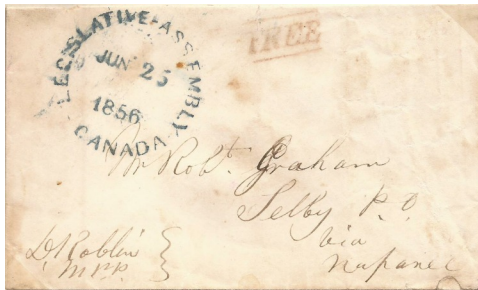 LEGISLATIVE ASSEMBLY
JUN 25
1856
CANADA
FREE
Mr Robt. Graham
Selby P.O.
via
Napanee
D. Roblin
M.P.P.